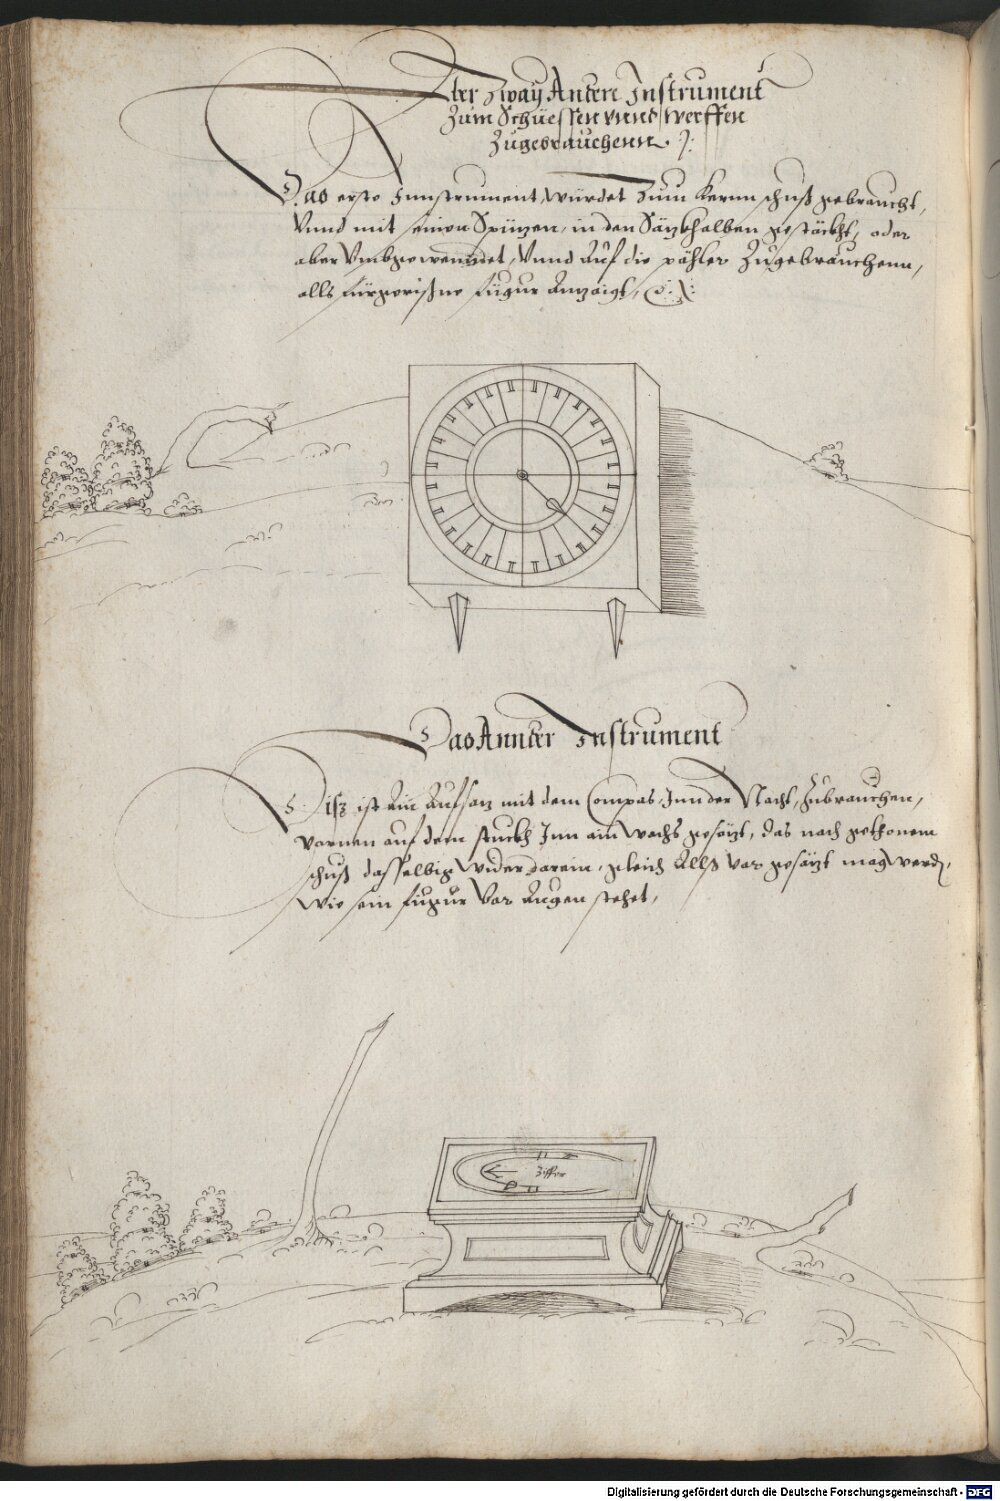 Aber Zway Andere Instrument
Zum Schüessen vnnd werffen
Zugebrauchenn.
Das erste Innstrument, würdet Zum Kernn schuß gebraucht,
Vnnd mit seinen Spitzen, in den Säzkholben gestäckht, oder
aber Vmbgewenndet, Vnnd Auf die pöhler Zugebrauchenn,
alls fürgerißne figur Anzaigt,
Das Annder Instrument
Disz ist Ain Aufsaz mit dem Compas, Inn der Nacht, Zubrauchen,
vornen auf dem stuckh Inn ain Wachs gesäzt, das nach gethonem
schuß dasselbig wider darein, gleich Allß vor gesäzt mag werden,
Wie sein figur Vor Augen stehet,
Ziffer
Digitalisierung gefördert durch die Deutsche Forschungsgemeinschaft - DFG